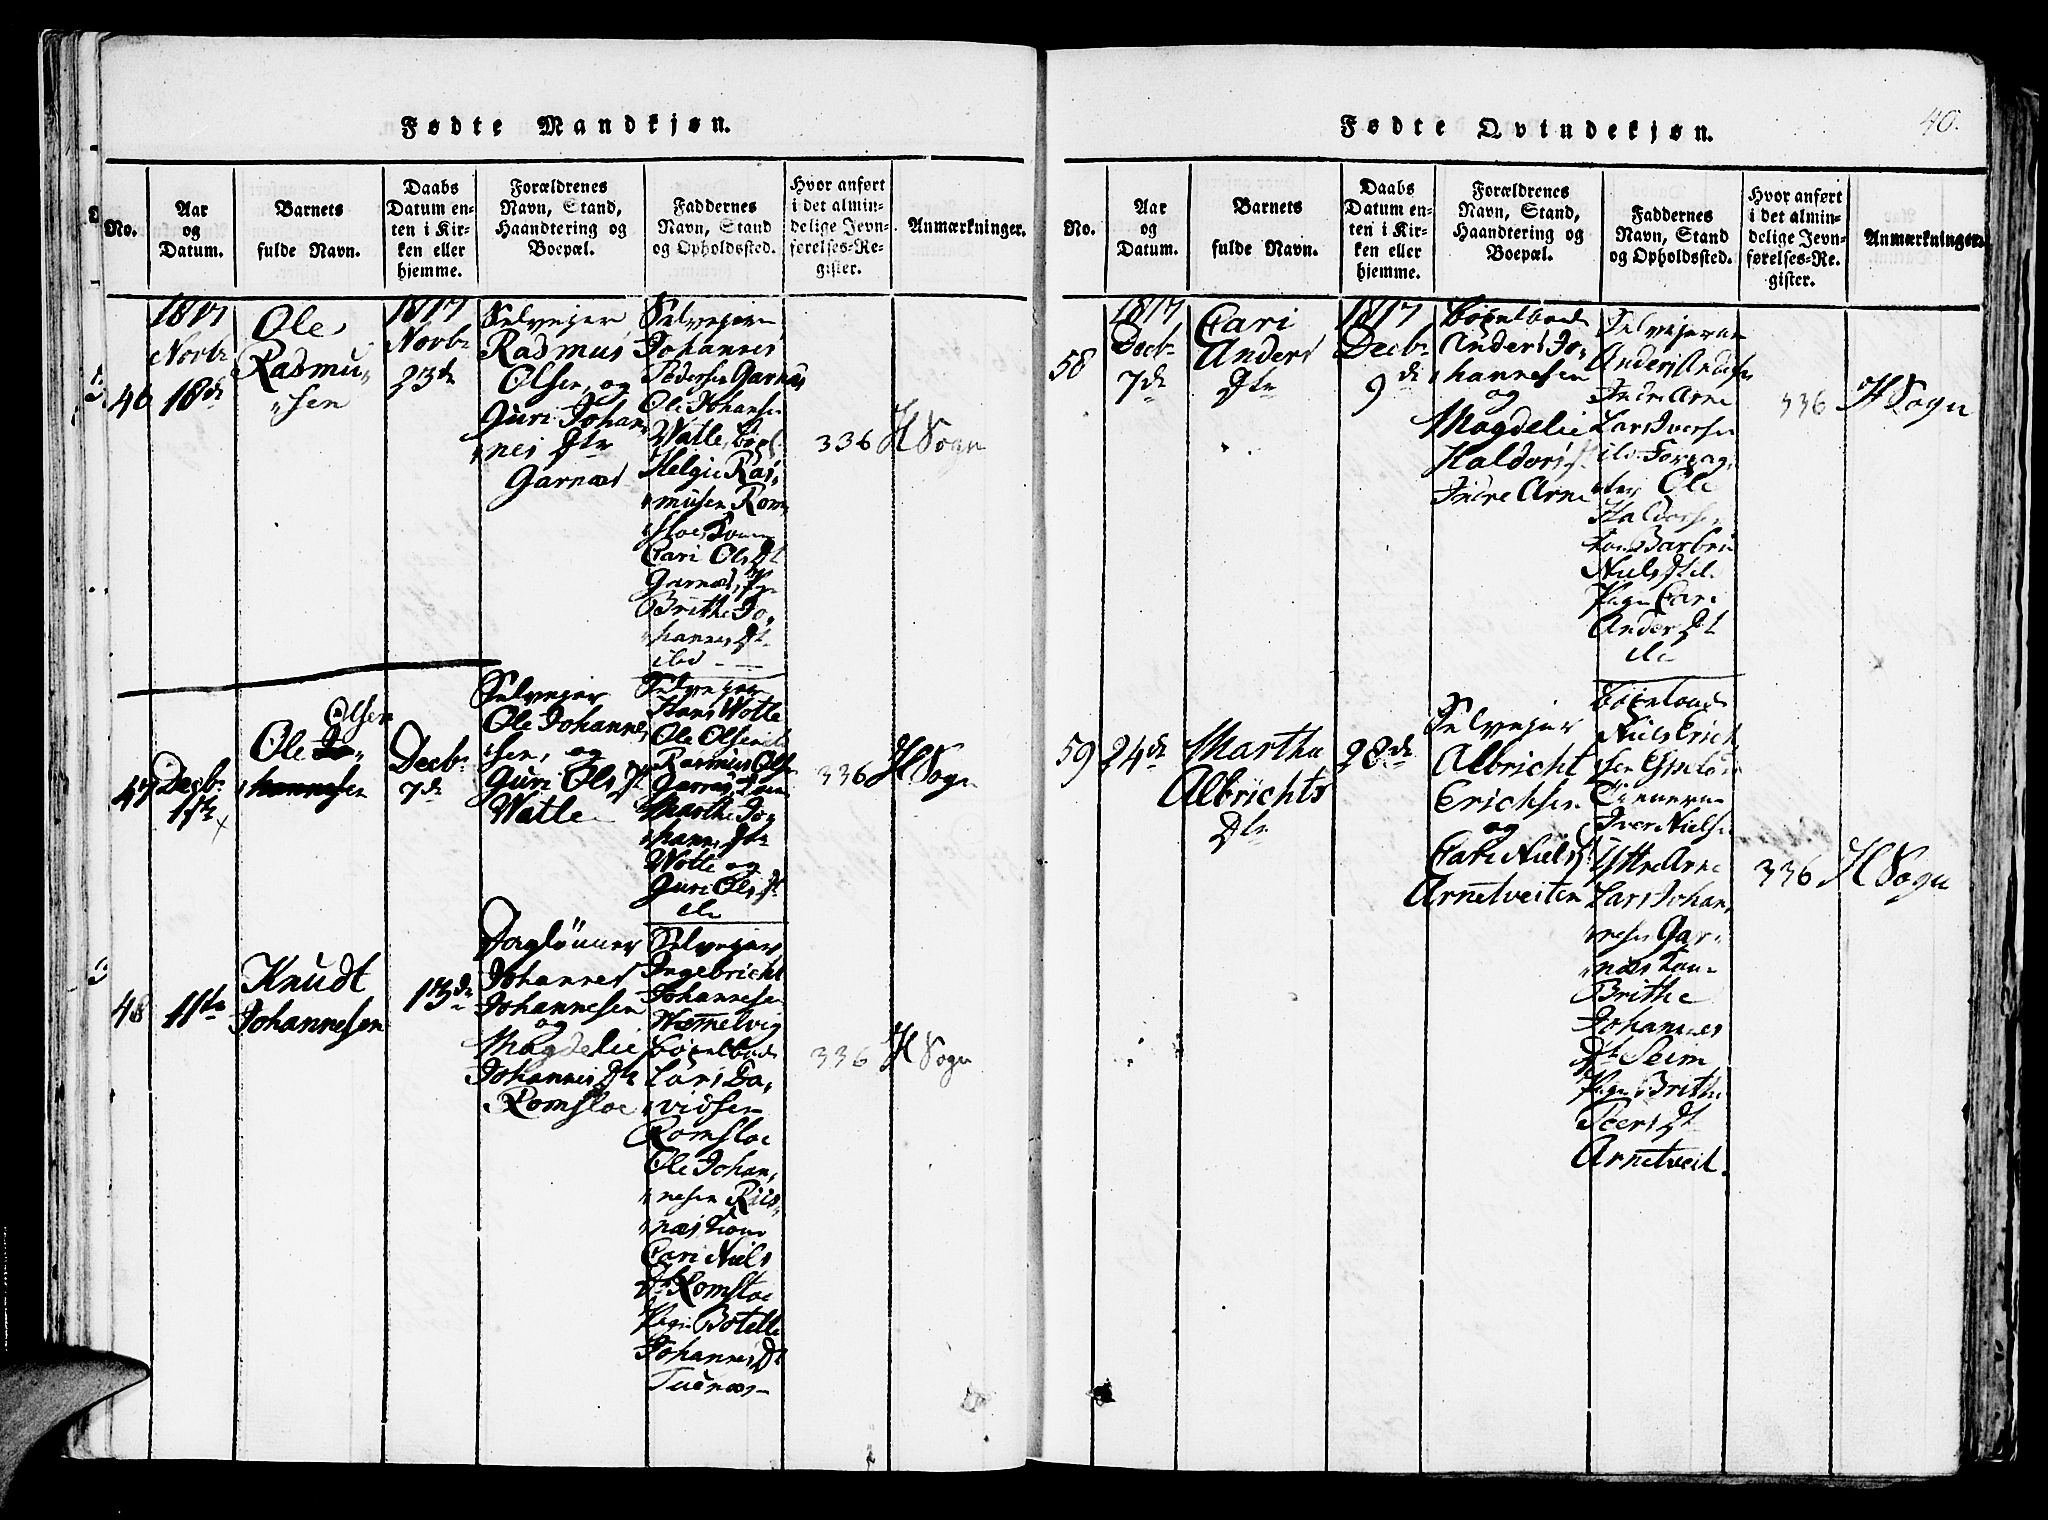 Fødte Mandkjøn.
No.
Aar
og
Datum.
Barnets
fulde Navn.
Daabs
Datum en-
ten i Kir-
ken eller
hjemme.
Forældrenes
Navn, Stand,
Haandtering og
Boepæl.
Faddernes
Navn, Stand
og Opholdssted.
Hvor anført
i det almin-
delige Jevn-
førelses-Re-
gister.
Anmærkninger.
46
1817
Novbr
18de
Ole
Rasmu„
„sen
1817
Novbr
23de
Selvejer
Rasmus
Olsen, og
Guri Johan„
„nes Dtr
Garnæs
Selvejerne
Johannes
Pedersen Garnæs
Ole Johansen
Watle,
Helgie Ras„
„musen Rom„
„sloe Kone
Cari Ols Dt
Garnæs, Pge
Brithe Jo„
„hannes Dt
ibid
336
H Sogn
47
Decbr
1ste
Olsen
Ole Jo„
„hannesen
Decbr
7de
Selvejer
Ole Johannes
„sen, og
Guri Ols Dt
Watle
Selvejer
Hans Watle
Ole Olsen
Rasmus Olsen
Garnæs, Kone
Marthe Jo„
„hannes Dtr
Watle og
Guri Ols Dt
336
H Sogn
48
11te
Knudt
Johannesen
13de
Daglönner
Johannes
Johannesen
og
Magdelie
Johannes Dtr
Romsloe
Selvejer
Ingebricht
Johannesen
Wemelvig
Lars Da„
„vidsen
Romsloe
Ole Johan„
„nesen Riis„
„næs Kone
Cari Niels
Dt Romsloe
Pige Botille
Johannes Dt
Tuenæs
336
H Sogn
Fødte Qvindekjøn.
40.
No.
Aar
og
Datum.
Barnets
fulde Navn.
Daabs
Datum en-
ten i Kir-
ken eller
hjemme.
Forældrenes
Navn, Stand,
Haandtering og
Boepæl.
Faddernes
Navn, Stand
og Opholdssted.
Hvor anført
i det almin-
delige Jevn-
førelses-Re-
gister.
Anmærkninger.
58
1817
Decbr
7de
Cari
Anders
Dtr
1817
Decbr
9de
Anders Jo„
„hannesen
og
Magdelie
Haldors
Indre Arne
Selvejerne
Anders Andersen
Indre Arne
Lars Iversen
Ole
Haldorsen
Kone Barbro
Niels Dt
Pige Cari
Anders Dt
336
H Sogn
59
24de
Martha
Albrichts
Dtr
28de
Selvejer
Albricht
Erichsen
og
Cari Niels
Arnetveiten
Niels Erich„
„sen Espeland
Iver Nielsen
Yttre Arne
Lars Johan„
„nesen Gar„
„næs Kone
Brithe
Johannes
Dt Seim
Pige Brithe
Peers Dt
Arnetveit.
336
H Sogn